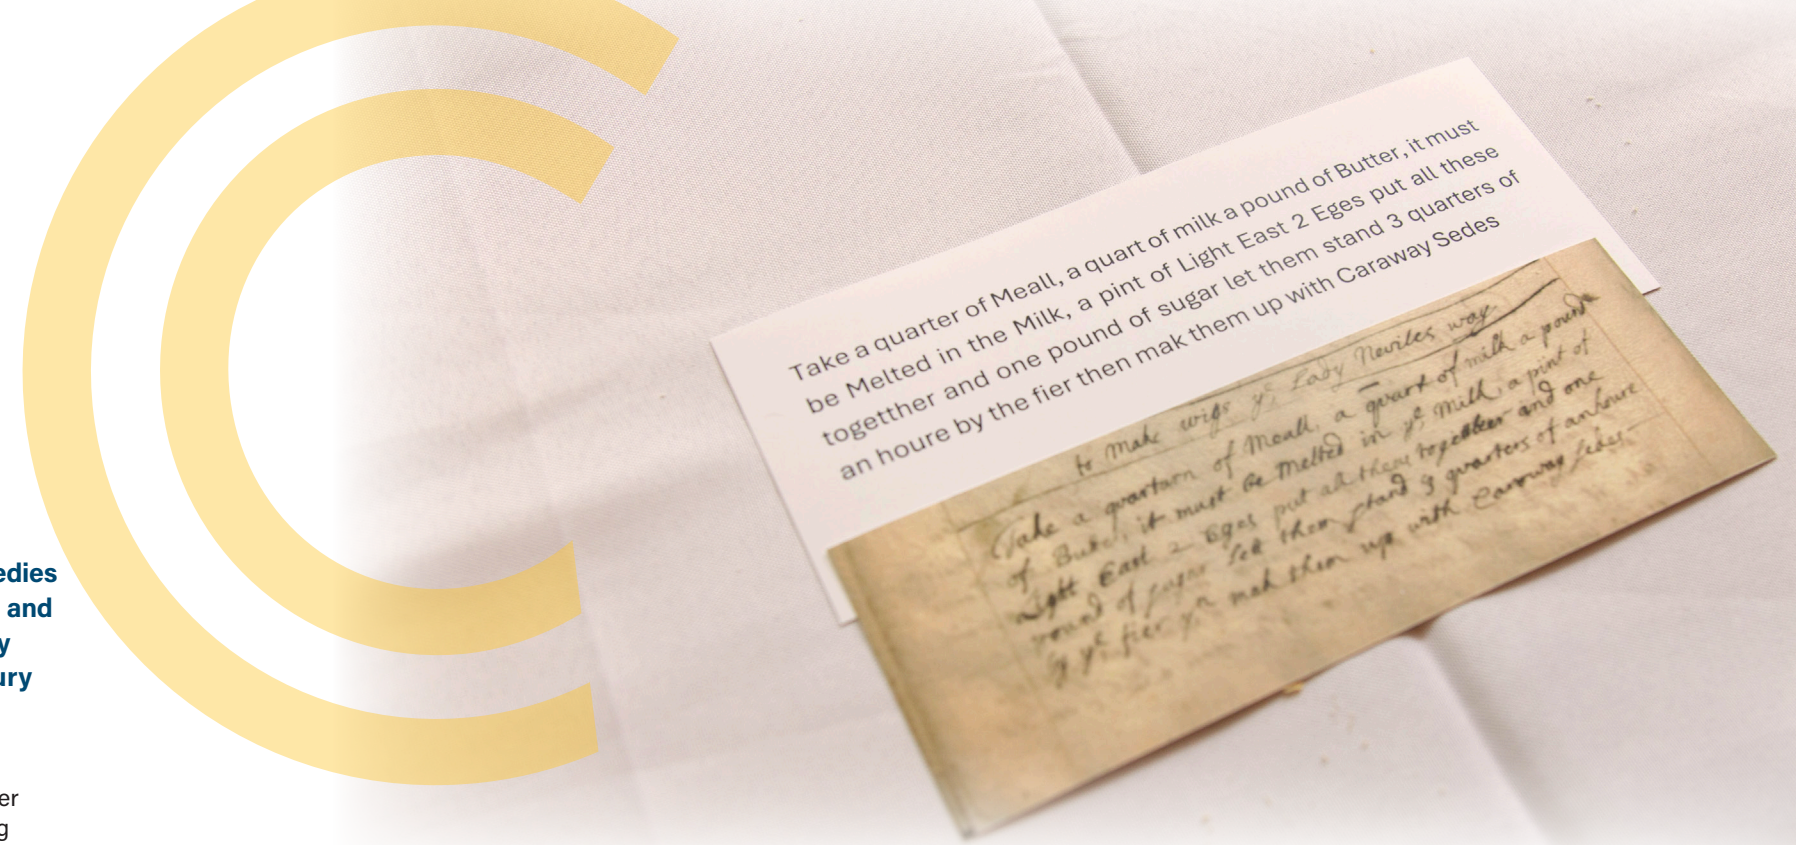 edies
and
y
ury
er
g
Take a quarter of Meall, a quart of milk a pound of Butter, it must
be Melted in the Milk, a pint of Light East 2 Eges put all these
togetther and one pound of sugar let them stand 3 quarters of
an houre by the fier then mak them up with Caraway Sedes
to make wigs yᵉ Lady Neviles way
Take a quartarn of Meall, a quart of milk a pound
of Buter, it must be Melted in yᵉ Milk, a pint of
Light East 2 Eges put all these togetther and one
pound of sugar lett them stand 3 quarters of an houre
by yᵉ fier yⁿ mak them up with Carraway sedes